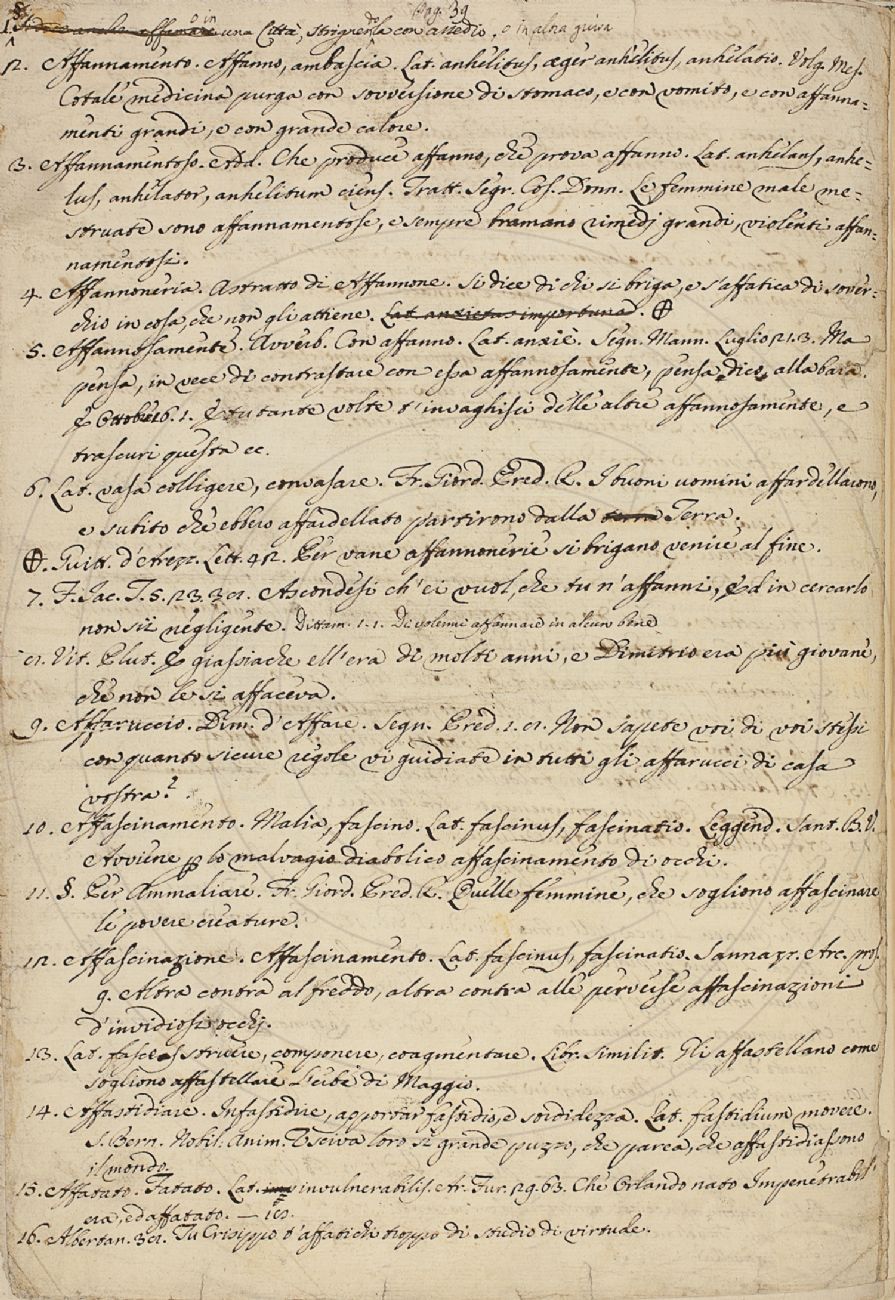 Pag. 39
1. §. Si dice anche affamare una Città, strignendola con assedio, o in altra guisa
o in
12. Affannamento. Affanno, ambascia. Lat. anhelitus, æger anhelitus, anhelatio. Volg. Mes.
Cotale medicina purga con sovversione di stomaco, e con vomito, e con affanna=
menti grandi, e con grande calore.
3. Affannamentoso. Add. Che produce affanno, che prova affanno. Lat. anhelans, anhe=
lus, anhelator, anhelitum ciens. Tratt. Segr. Cos. Donn. Le femmine male me=
struate sono affannamentose, e sempre bramano rimedj grandi, violenti affan=
namentosi.
4. Affannoneria. Astratto di Affannone. Si dice di chi si briga, e s'affatica di sover=
chio in cosa, che non gli attiene. Lat. anxietas importuna. ⊕
5. Affannosamente. Avverb. Con affanno. Lat. anxiè. Segn. Mann. Luglio 21.3. Ma
pensa, in vece di contrastare con essa affannosamente, pensa, dico, alla bara.
E Ottobr. 16. 1. E tu tante volte t'invaghisci delle altre affannosamente, e
trascuri questa ec.
6. Lat. vasa colligere, convasare. Fr. Giord. Pred. R. I buoni uomini affardellarono,
e subito che ebbero affardellato partirono dalla terra Terra.
⊕. Guitt. d'Arezz. Lett. 42. Per vane affannonerie si brigano venire al fine.
7. F. Jac. T. 5. 23. 38. Ascondesi ch'ei vuol, che tu n'affanni, Ed in cercarlo
non sii negligente. Dittam. 1. 1. Di volermi affannare in alcun bene
8. Vit. Plut. E giassiache ell'era di molti anni, e Dimitrio era più giovane,
che non le si affaceva.
9. Affaruccio. Dim. d'Affare. Segn. Pred. 1. 8. Non sapete voi di voi stessi
con quanto sicure regole vi guidiate in tutti gli affarucci di casa
vostra?
10. Affascinamento. Malia, fascino. Lat. fascinus, fascinatio. Leggend. Sant. B. V.
Avviene p lo malvagio diabolico affascinamento di occhi.
11. §. Per Ammaliare. Fr. Giord. Pred. R. Quelle femmine, che sogliono affascinare
le povere creature.
12. Affascinazione. Affascinamento. Lat. fascinus, fascinatio. Sannazz. Arc. pros.
9. Altra contra al freddo, altra contra alle perverse affascinazioni
d'invidiosi occhj.
13. Lat. fasces struere, componere, coagmentare. Libr. Similit. Gli affastellano come
sogliono affastellare l'erbe di Maggio.
14. Affastidiare. Infastidire, apportar fastidio, e sordidezza. Lat. fastidium movere.
S. Bern. Nobil. Anim. Usciva loro sì grande puzzo, che parea, che affastidiassono
il mondo.
15. Affatato. Fatato. Lat. inv invulnerabilis. Ar. Fur. 29. 63. Che Orlando nato Impenetrabil'
era, ed affatato.
16. Albertan. 38. Tu Crisippo t'affatichi troppo di studio di virtude.